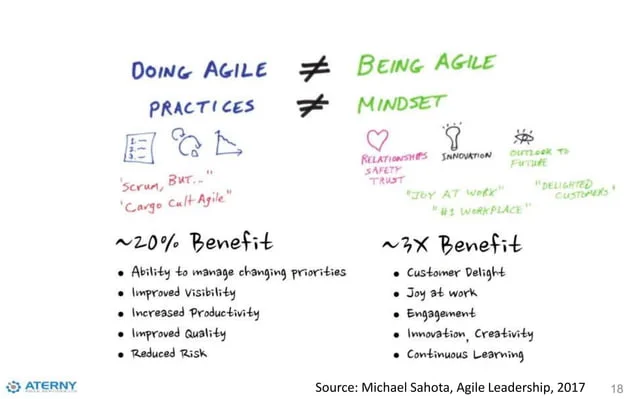 DOING AGILE ≠ BEING AGILE
PRACTICES ≠ MINDSET
1.
2.
3.
RELATIONSHIPS
SAFETY
TRUST
INNOVATION
OUTLOOK TO
FUTURE
"Scrum, BUT..."
"Cargo Cult Agile"
"JOY AT WORK"
"#1 WORKPLACE"
"DELIGHTED
CUSTOMERS"
~20% Benefit
• Ability to manage changing priorities
• Improved Visibility
• Increased Productivity
• Improved Quality
• Reduced Risk
~3X Benefit
• Customer Delight
• Joy at work
• Engagement
• Innovation, Creativity
• Continuous Learning
ATERNY
Source: Michael Sahota, Agile Leadership, 2017
18